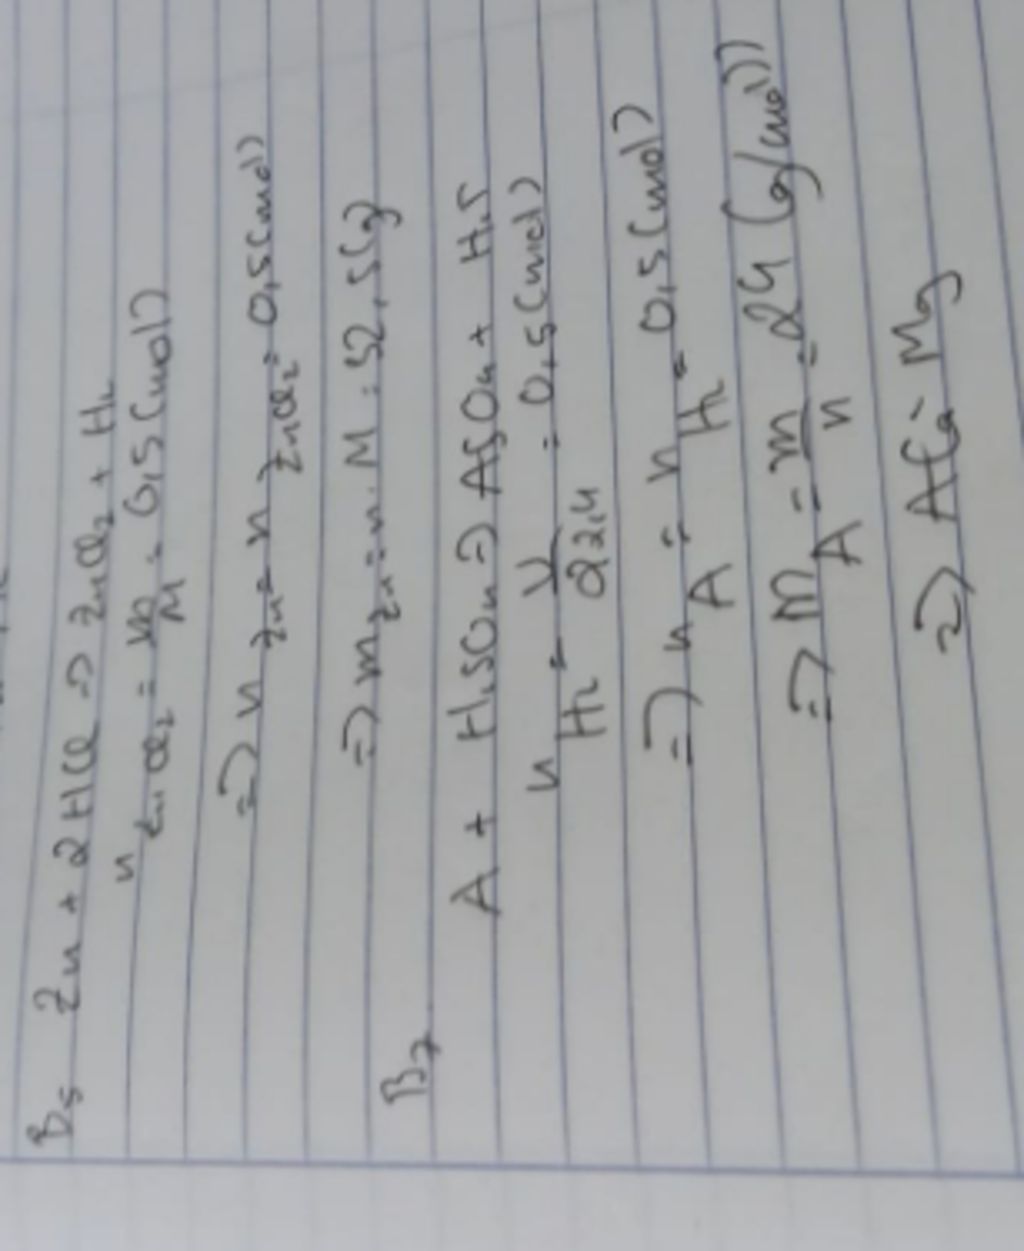 B5 Zn + 2HCl => ZnCl2 + H2
n ZnCl2 = m/M = 0,5 (mol)
=> n Zn = n ZnCl2 = 0,5 (mol)
=> m Zn = n . M = 32,5 (g)
B7
A + H2SO4 => ASO4 + H2
n H2 = V/22,4 = 0,5 (mol)
=> n A = n H2 = 0,5 (mol)
=> M A = m/n = 24 (g/mol))
=> A là Mg